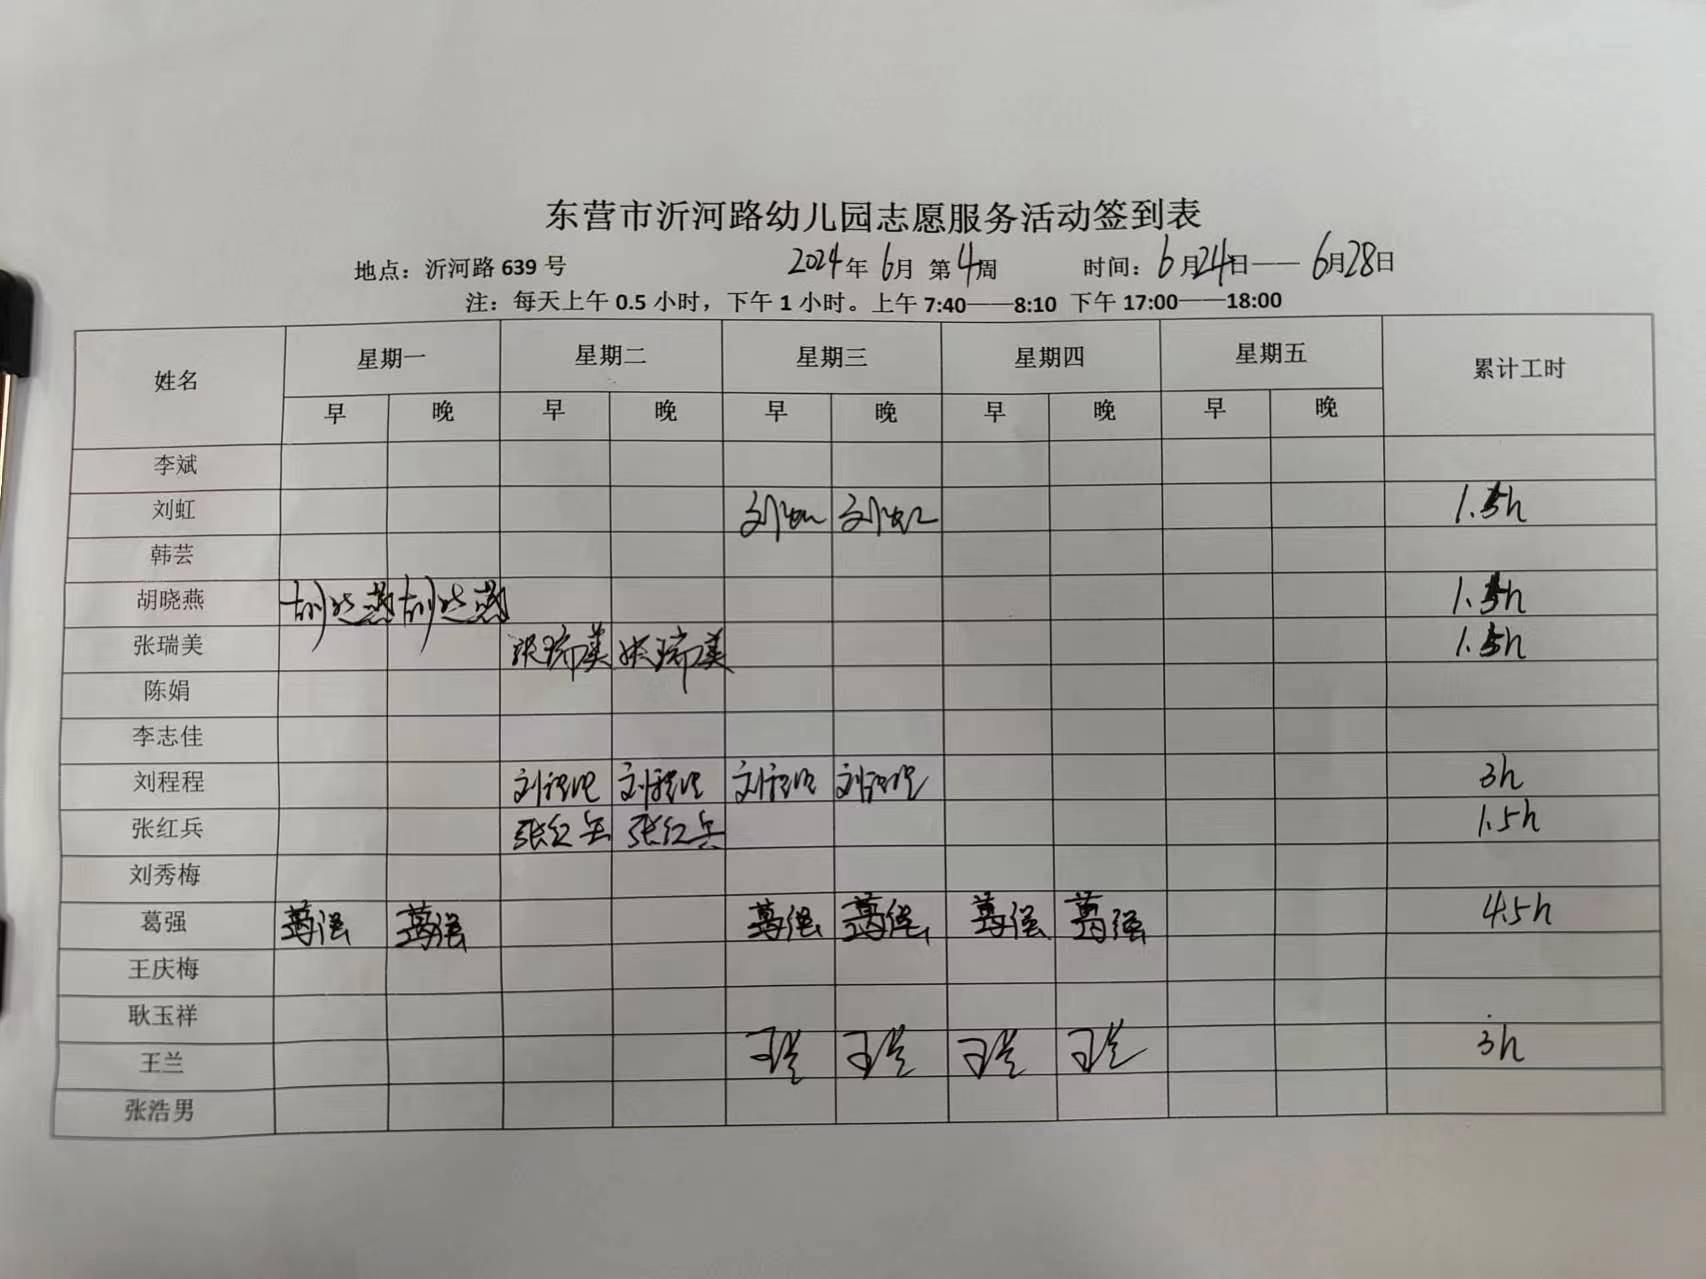 东营市沂河路幼儿园志愿服务活动签到表
地点：沂河路 639 号 2024 年 6 月 第 4 周 时间：6 月 24 日—— 6 月 28 日
注：每天上午 0.5 小时，下午 1 小时。上午 7:40——8:10 下午 17:00——18:00
姓名 星期一 星期二 星期三 星期四 星期五 累计工时
早 晚 早 晚 早 晚 早 晚 早 晚
李斌
刘虹 刘虹 刘虹 1.5h
韩芸
胡晓燕 胡晓燕 胡晓燕 1.5h
张瑞美 张瑞美 张瑞美 1.5h
陈娟
李志佳
刘程程 刘程程 刘程程 刘程程 刘程程 3h
张红兵 张红兵 张红兵 1.5h
刘秀梅
葛强 葛强 葛强 葛强 葛强 葛强 葛强 4.5h
王庆梅
耿玉祥
王兰 王兰 王兰 王兰 王兰 3h
张浩男